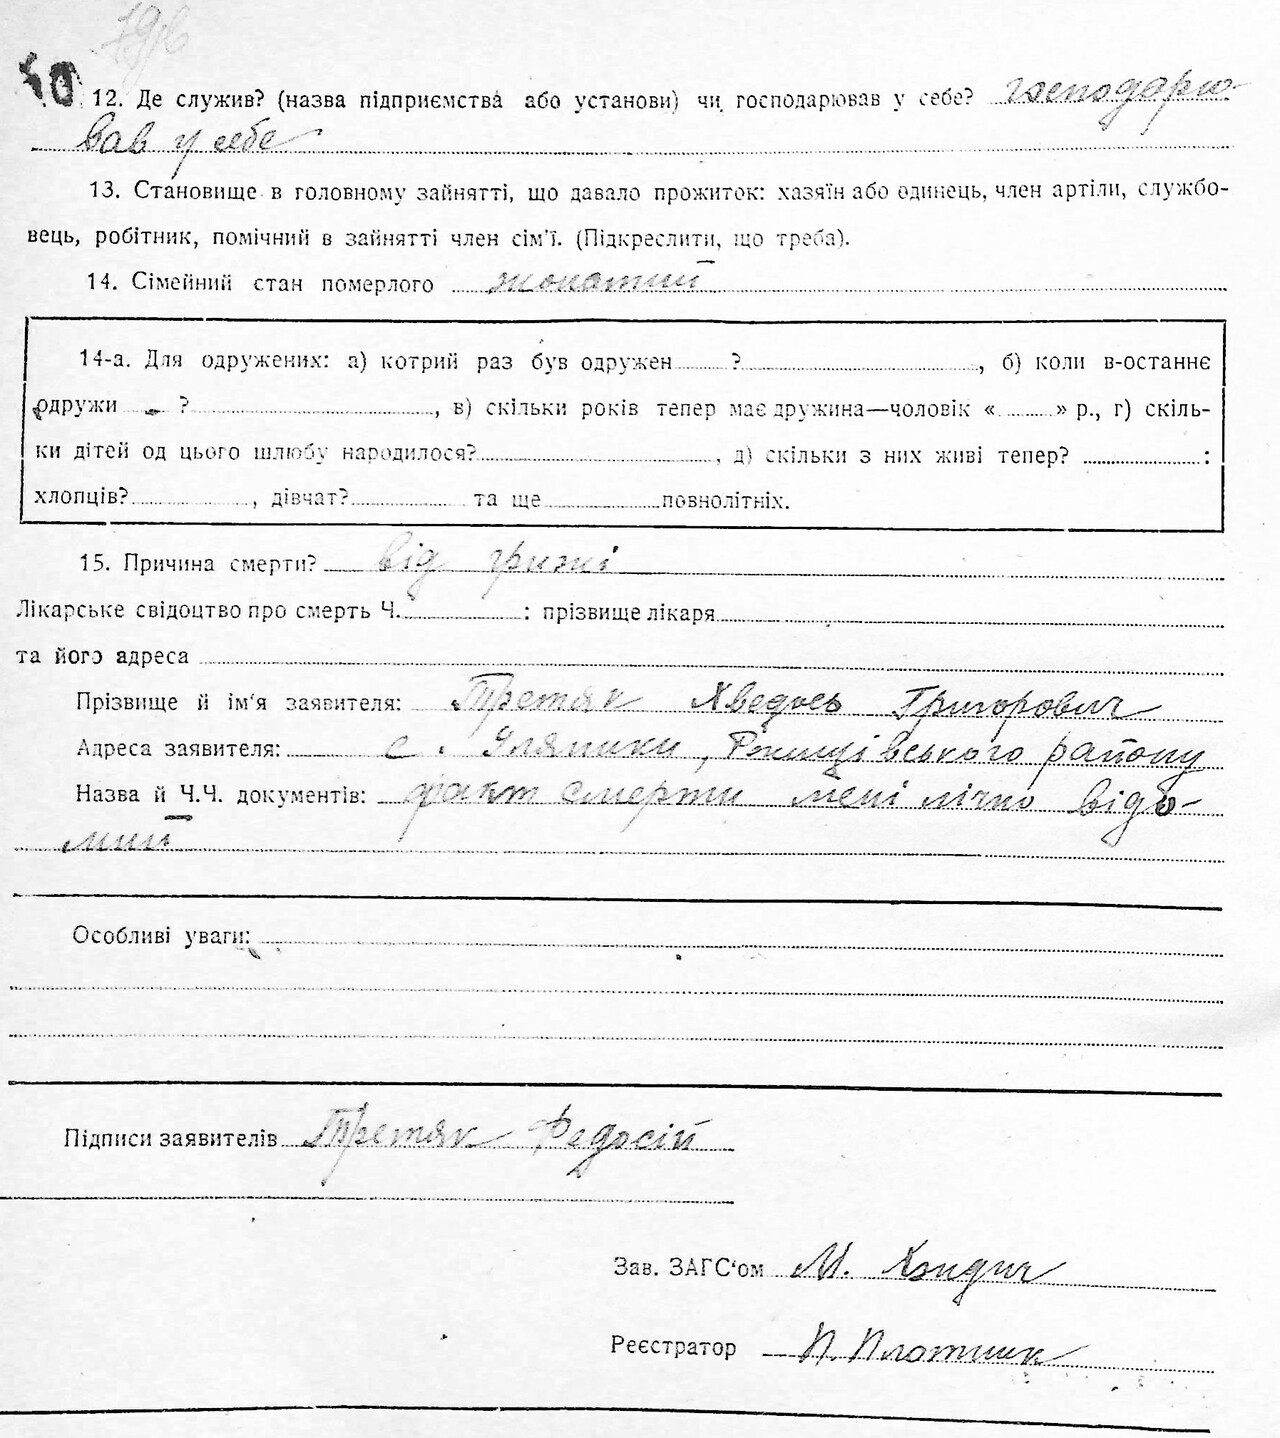 12. Де служив? (назва підприємства або установи) чи господарював у себе? господарю-
вав у себе
13. Становище в головному зайнятті, що давало прожиток: хазяїн або одинець, член артіли, службо-
вець, робітник, помічний в зайнятті член сім'ї. (Підкреслити, що треба).
14. Сімейний стан померлого жонатий
14-а. Для одружених: а) котрий раз був одружен ?, б) коли в-останнє
одружи ?, в) скільки років тепер має дружина—чоловік « » р., г) скіль-
ки дітей од цього шлюбу народилося?, д) скільки з них живі тепер? :
хлопців?, дівчат? та ще повнолітніх.
15. Причина смерти? від грижі
Лікарське свідоцтво про смерть Ч. : прізвище лікаря
та його адреса
Прізвище й ім'я заявителя: Третяк Хведось Григорович
Адреса заявителя: с. Уляники, Ржищівського району
Назва й Ч.Ч. документів: факт смерти мені лічно відо-
мий
Особливі уваги:
Підписи заявителів Третяк Федосій
Зав. ЗАГС'ом М.
Реєстратор П. Плотник